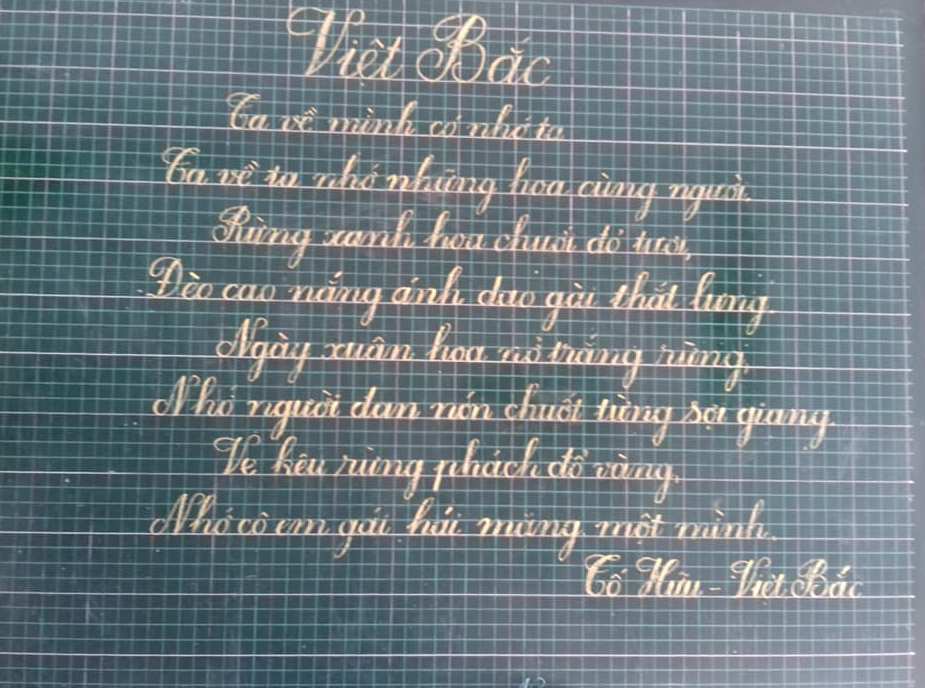 Việt Bắc
Ta về mình có nhớ ta
Ta về ta nhớ những hoa cùng người.
Rừng xanh hoa chuối đỏ tươi,
Đèo cao nắng ánh dao gài thắt lưng.
Ngày xuân hoa nở trắng rừng,
Nhớ người đan nón chuốt từng sợi giang.
Ve kêu rừng phách đổ vàng,
Nhớ cô em gái hái măng một mình.
Tố Hữu - Việt Bắc